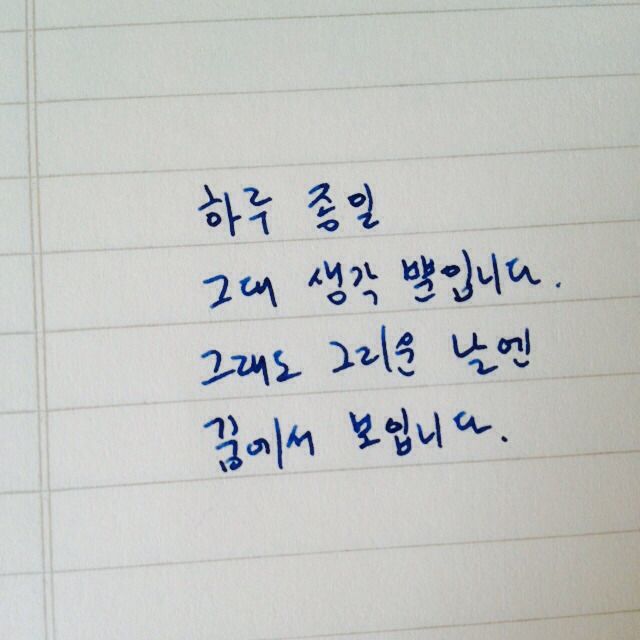 하루 종일
그대 생각 뿐입니다.
그래도 그리운 날엔
꿈에서 보입니다.